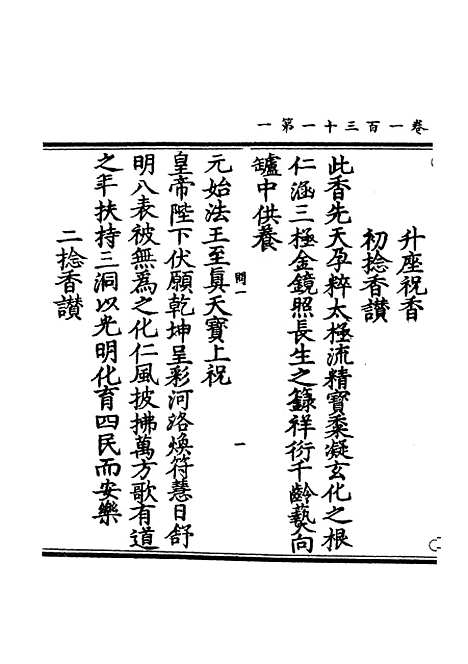 卷一百三十一第一
升座祝香
初捻香讃
此香先天孕粹太極流精寶秉凝玄化之根
仁涵三極金鏡照長生之籙祥衍千齡爇向
罏中供養
元始法王至眞天寶上祝
皇帝陛下伏願乾坤呈彩河洛煥符慧日舒
明八表被無爲之化仁風披拂萬方歌有道
之年扶持三洞以光明化育四民而安樂
二捻香讃
問一
一